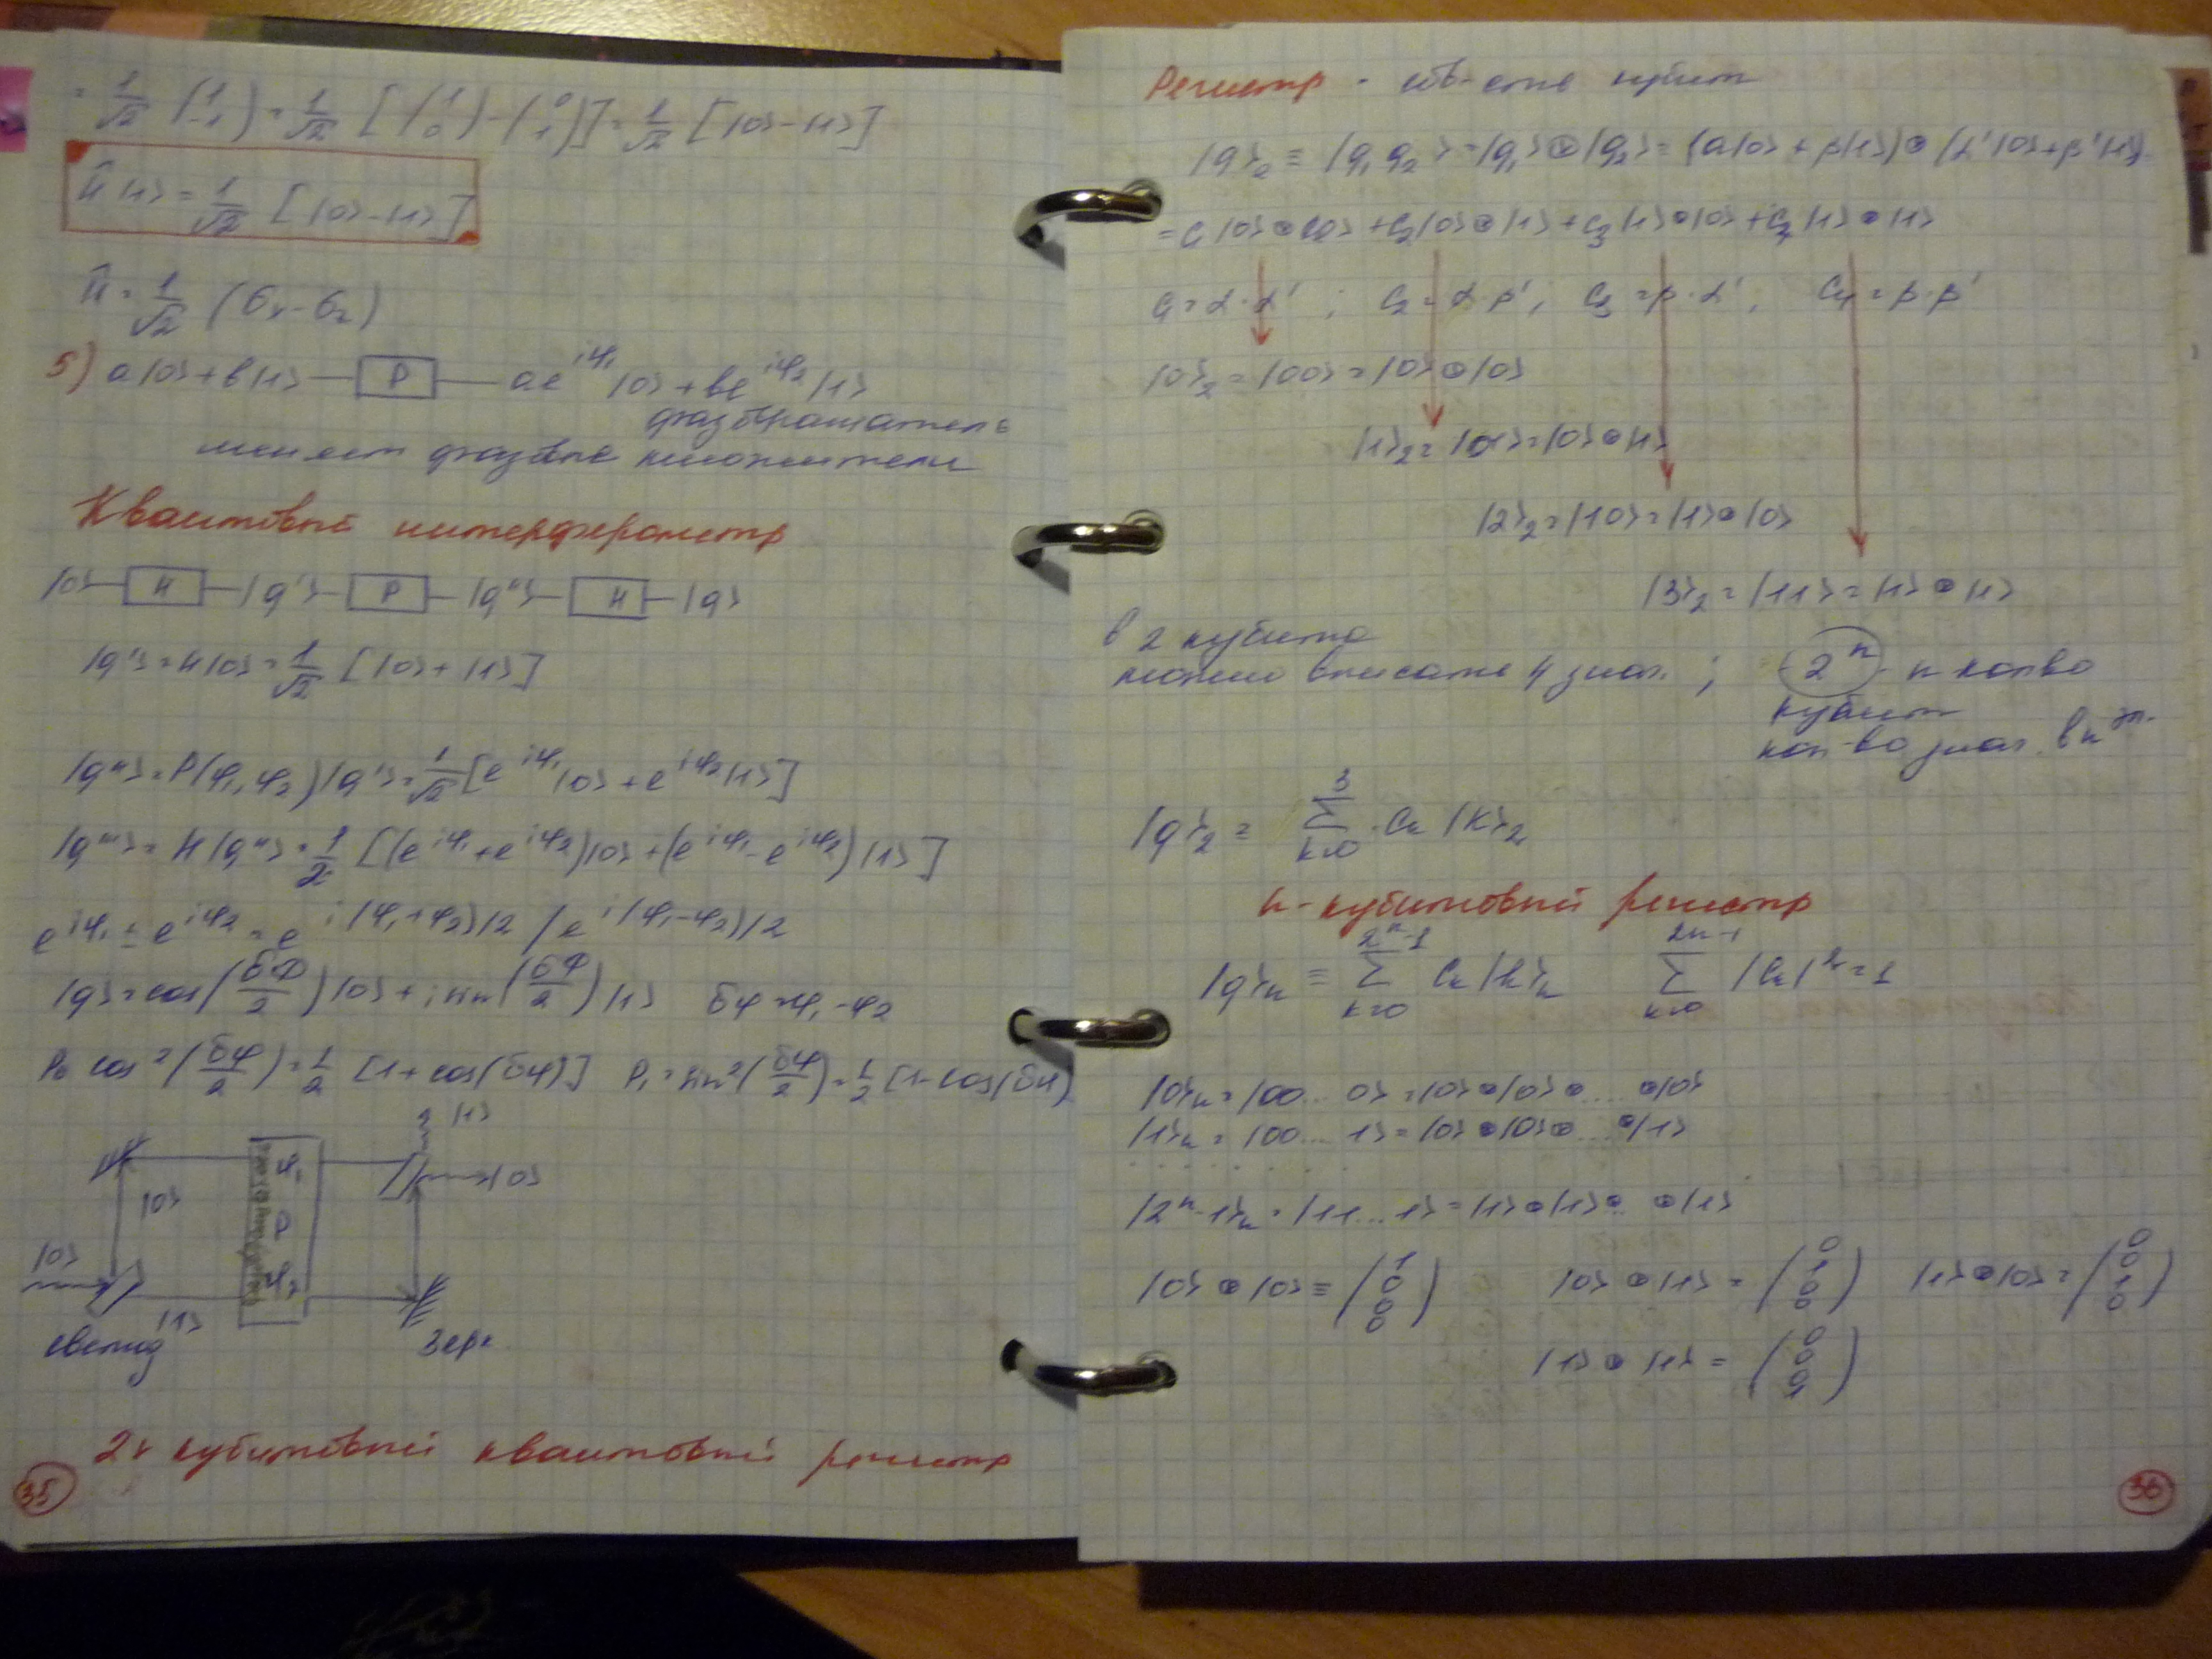 = 1/√2 (1 -1) = 1/√2 [(1 0) - (0 1)] = 1/√2 [|0> - |1>]
Ĥ|1> = 1/√2 [|0> - |1>]
5) a|0> + b|1> — P — ae^{iφ₁}|0> + be^{iφ₂}|1>
фазовращатель
меняет фазовые множители
Квантовый интерферометр
|0> — H — |q'> — P — |q''> — H — |q>
|q'> = H|0> = 1/√2 [|0> + |1>]
|q''> = P(φ₁, φ₂)|q'> = 1/√2 [e^{iφ₁}|0> + e^{iφ₂}|1>]
|q'''> = H|q''> = 1/2 [(e^{iφ₁} + e^{iφ₂})|0> + (e^{iφ₁} - e^{iφ₂})|1>]
e^{iφ₁} ± e^{iφ₂} = e^{i(φ₁+φ₂)/2} (e^{i(φ₁-φ₂)/2}
|q> = cos(δφ/2)|0> + i sin(δφ/2)|1> δφ = φ₁ - φ₂
P₀ cos²(δφ/2) = 1/2 [1 + cos(δφ)] P₁ = sin²(δφ/2) = 1/2 [1 - cos(δφ)
|1>
φ₁ |0>
|0>
P
|0> φ₂
|1>
светод Зерк
2х кубитовый квантовый регистр
35
Регистр - кубит
|q>₂ ≡ |q₁ q₂> = |q₁> ⊗ |q₂> = (α|0> + β|1>) ⊗ (α'|0> + β'|1>)
= C₁|0> ⊗ |0> + C₂|0> ⊗ |1> + C₃|1> ⊗ |0> + C₄|1> ⊗ |1>
C₁ = α·α' ; C₂ = α·β' ; C₃ = β·α' ; C₄ = β·β'
|0>₂ = |00> = |0> ⊗ |0>
|1>₂ = |01> = |0> ⊗ |1>
|2>₂ = |10> = |1> ⊗ |0>
|3>₂ = |11> = |1> ⊗ |1>
в 2 кубита
можно вписать 4 знач. ; 2ⁿ - n кол-во
кубит
кол-во знач. в n
|q>₂ = Σ_{k=0}^{3} Cₖ |k>₂
n-кубитовый регистр
|q>ₙ ≡ Σ_{k=0}^{2ⁿ-1} Cₖ|k>ₙ Σ_{k=0}^{2n-1} |Cₖ|² = 1
|0>ₙ = |00... 0> = |0> ⊗ |0> ⊗ .... ⊗ |0>
|1>ₙ = |00... 1> = |0> ⊗ |0> ⊗ ... ⊗ |1>
. . . . . . . .
|2ⁿ-1>ₙ = |11...1> = |1> ⊗ |1> ⊗ .. ⊗ |1>
|0> ⊗ |0> ≡ (1 0 0 0) |0> ⊗ |1> = (0 1 0 0) |1> ⊗ |0> = (0 0 1 0)
|1> ⊗ |1> = (0 0 0 1)
36